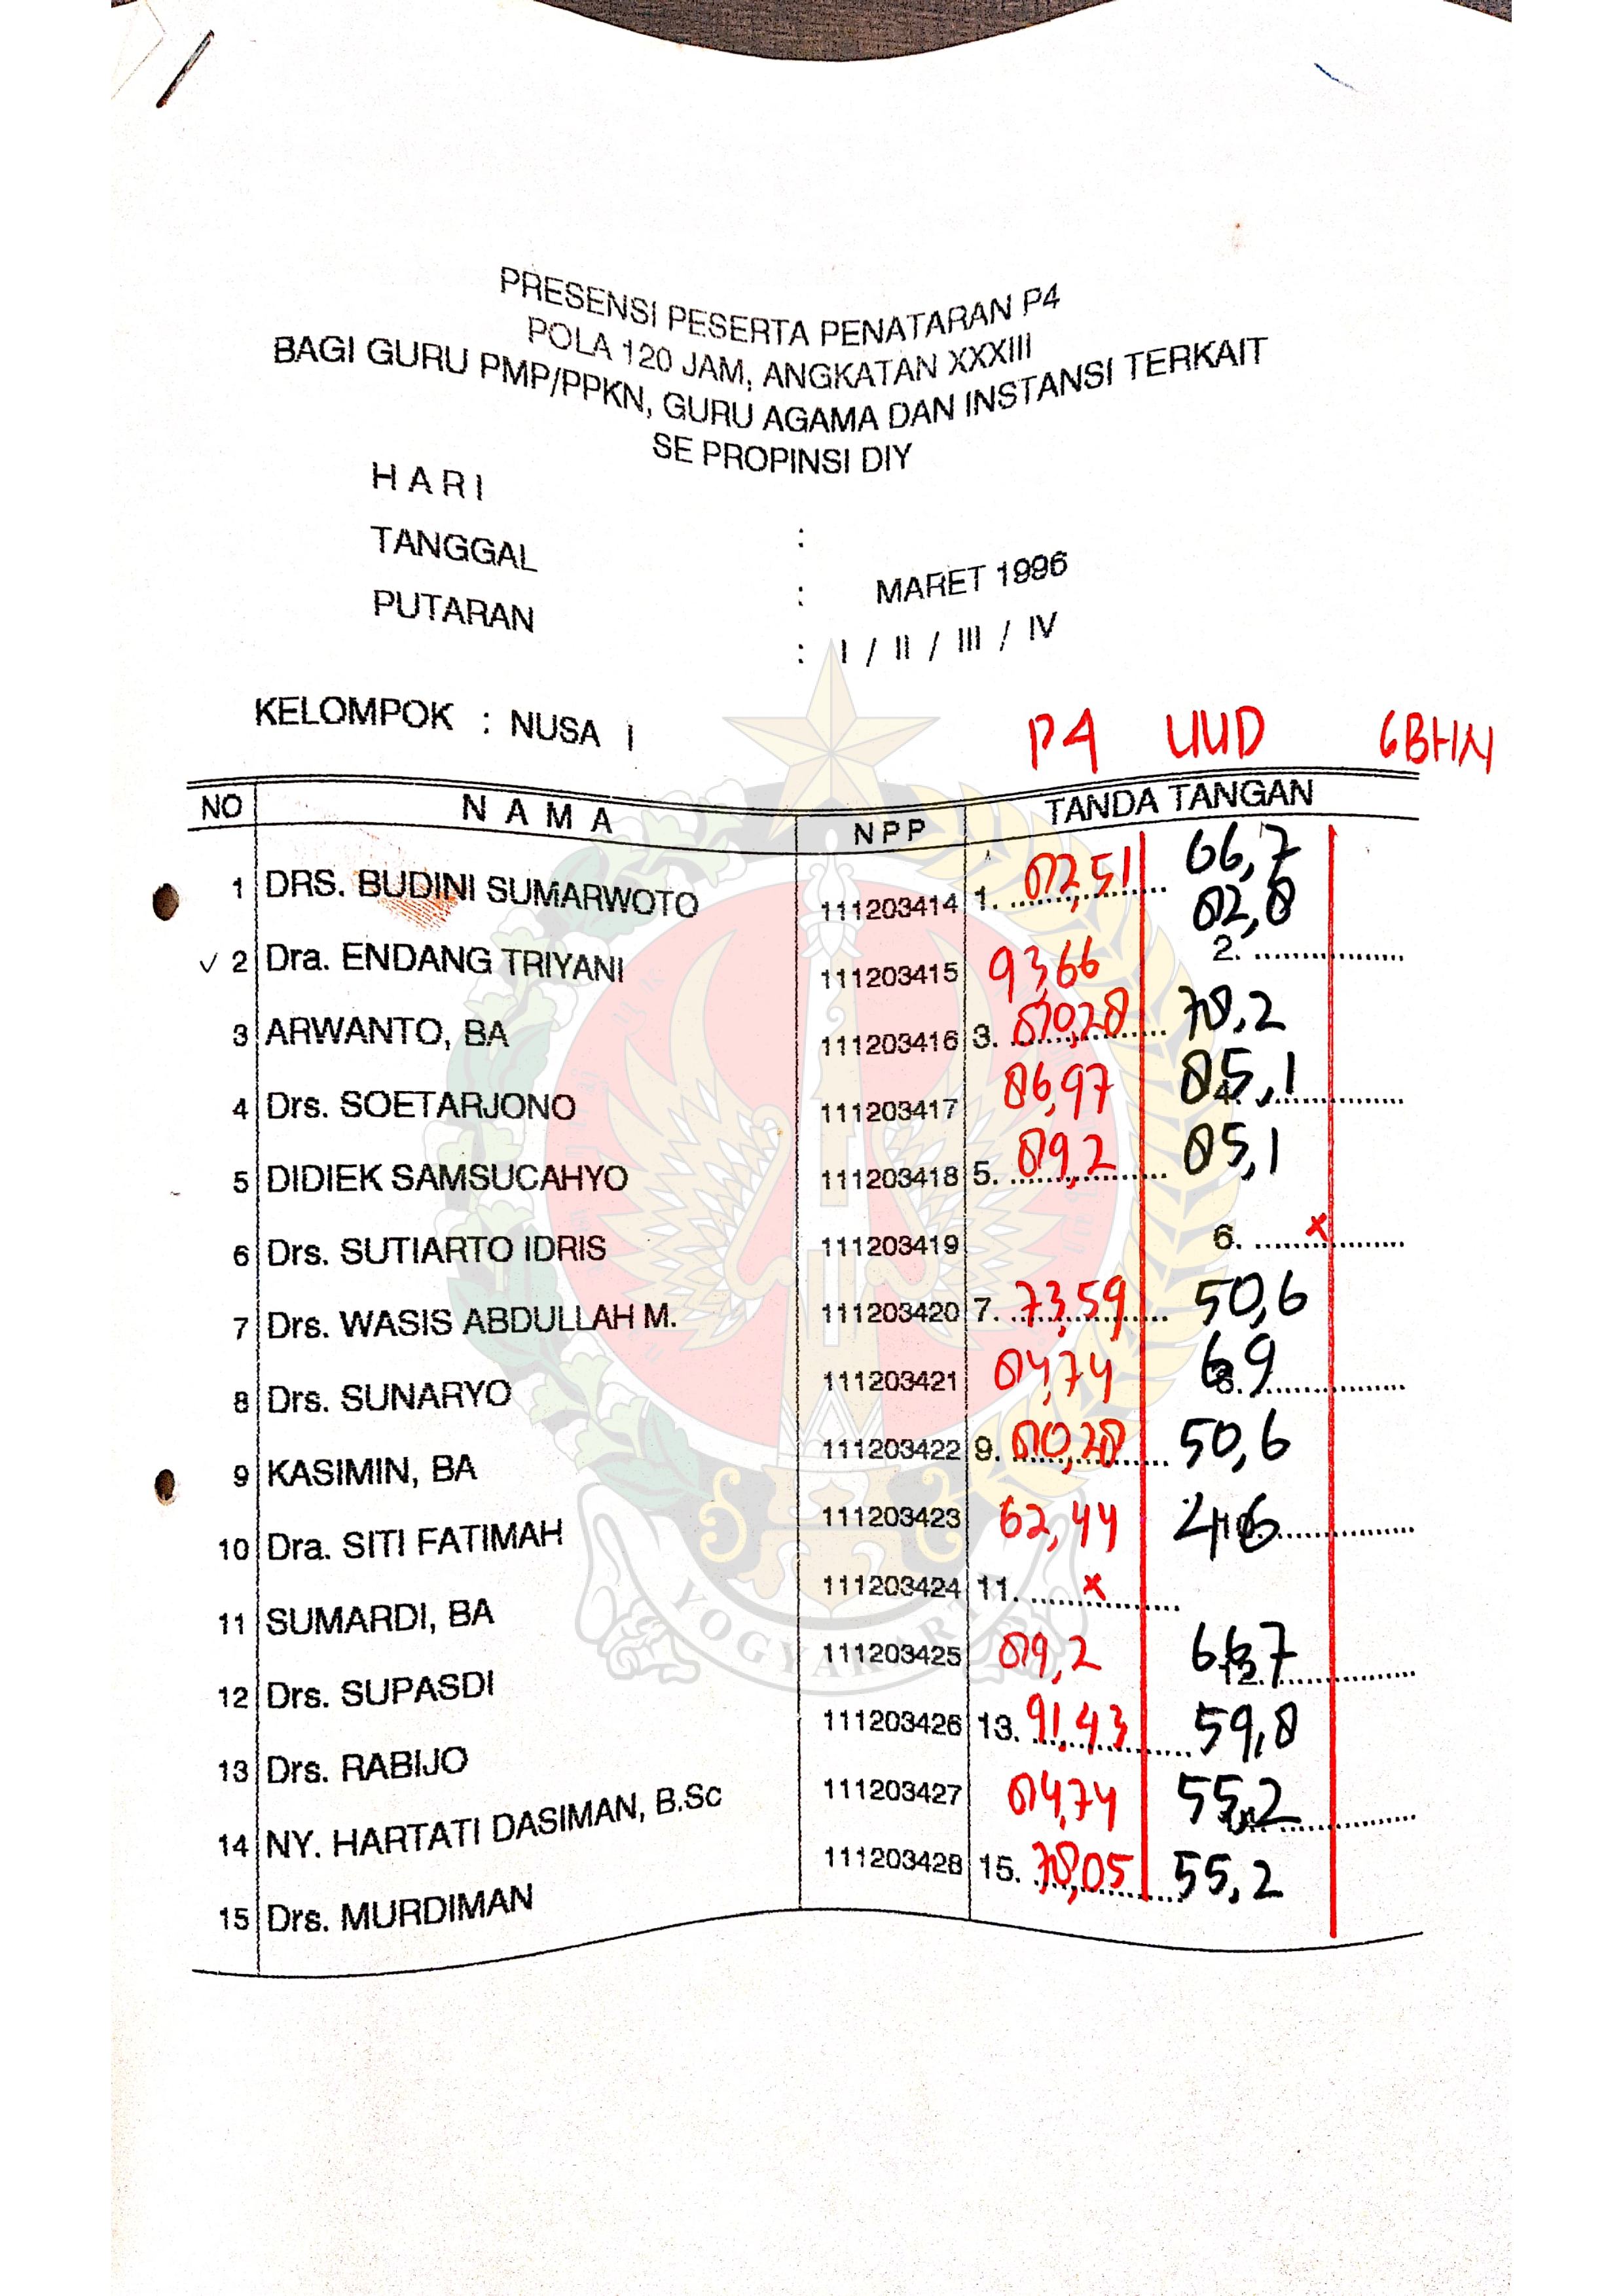 PRESENSI PESERTA PENATARAN P4
POLA 120 JAM, ANGKATAN XXXIII
BAGI GURU PMP/PPKN, GURU AGAMA DAN INSTANSI TERKAIT
SE PROPINSI DIY
H A R I :
TANGGAL : MARET 1996
PUTARAN : I / II / III / IV
KELOMPOK : NUSA I P4 UUD GBHN
NO N A M A N P P TANDA TANGAN
1 DRS. BUDINI SUMARWOTO 111203414 1. 82,51 66,7
✓ 2 Dra. ENDANG TRIYANI 111203415 93,66 2. 82,8
3 ARWANTO, BA 111203416 3. 80,28 78,2
4 Drs. SOETARJONO 111203417 86,97 4. 85,1
5 DIDIEK SAMSUCAHYO 111203418 5. 89,2 85,1
6 Drs. SUTIARTO IDRIS 111203419 6. x
7 Drs. WASIS ABDULLAH M. 111203420 7. 73,59 50,6
8 Drs. SUNARYO 111203421 84,74 8. 69
9 KASIMIN, BA 111203422 9. 80,28 50,6
10 Dra. SITI FATIMAH 111203423 62,44 10. 46
11 SUMARDI, BA 111203424 11. x
12 Drs. SUPASDI 111203425 89,2 12. 66,7
13 Drs. RABIJO 111203426 13. 91,43 59,8
14 NY. HARTATI DASIMAN, B.Sc 111203427 84,74 55,2
15 Drs. MURDIMAN 111203428 15. 78,05 55,2
YOGYAKARTA